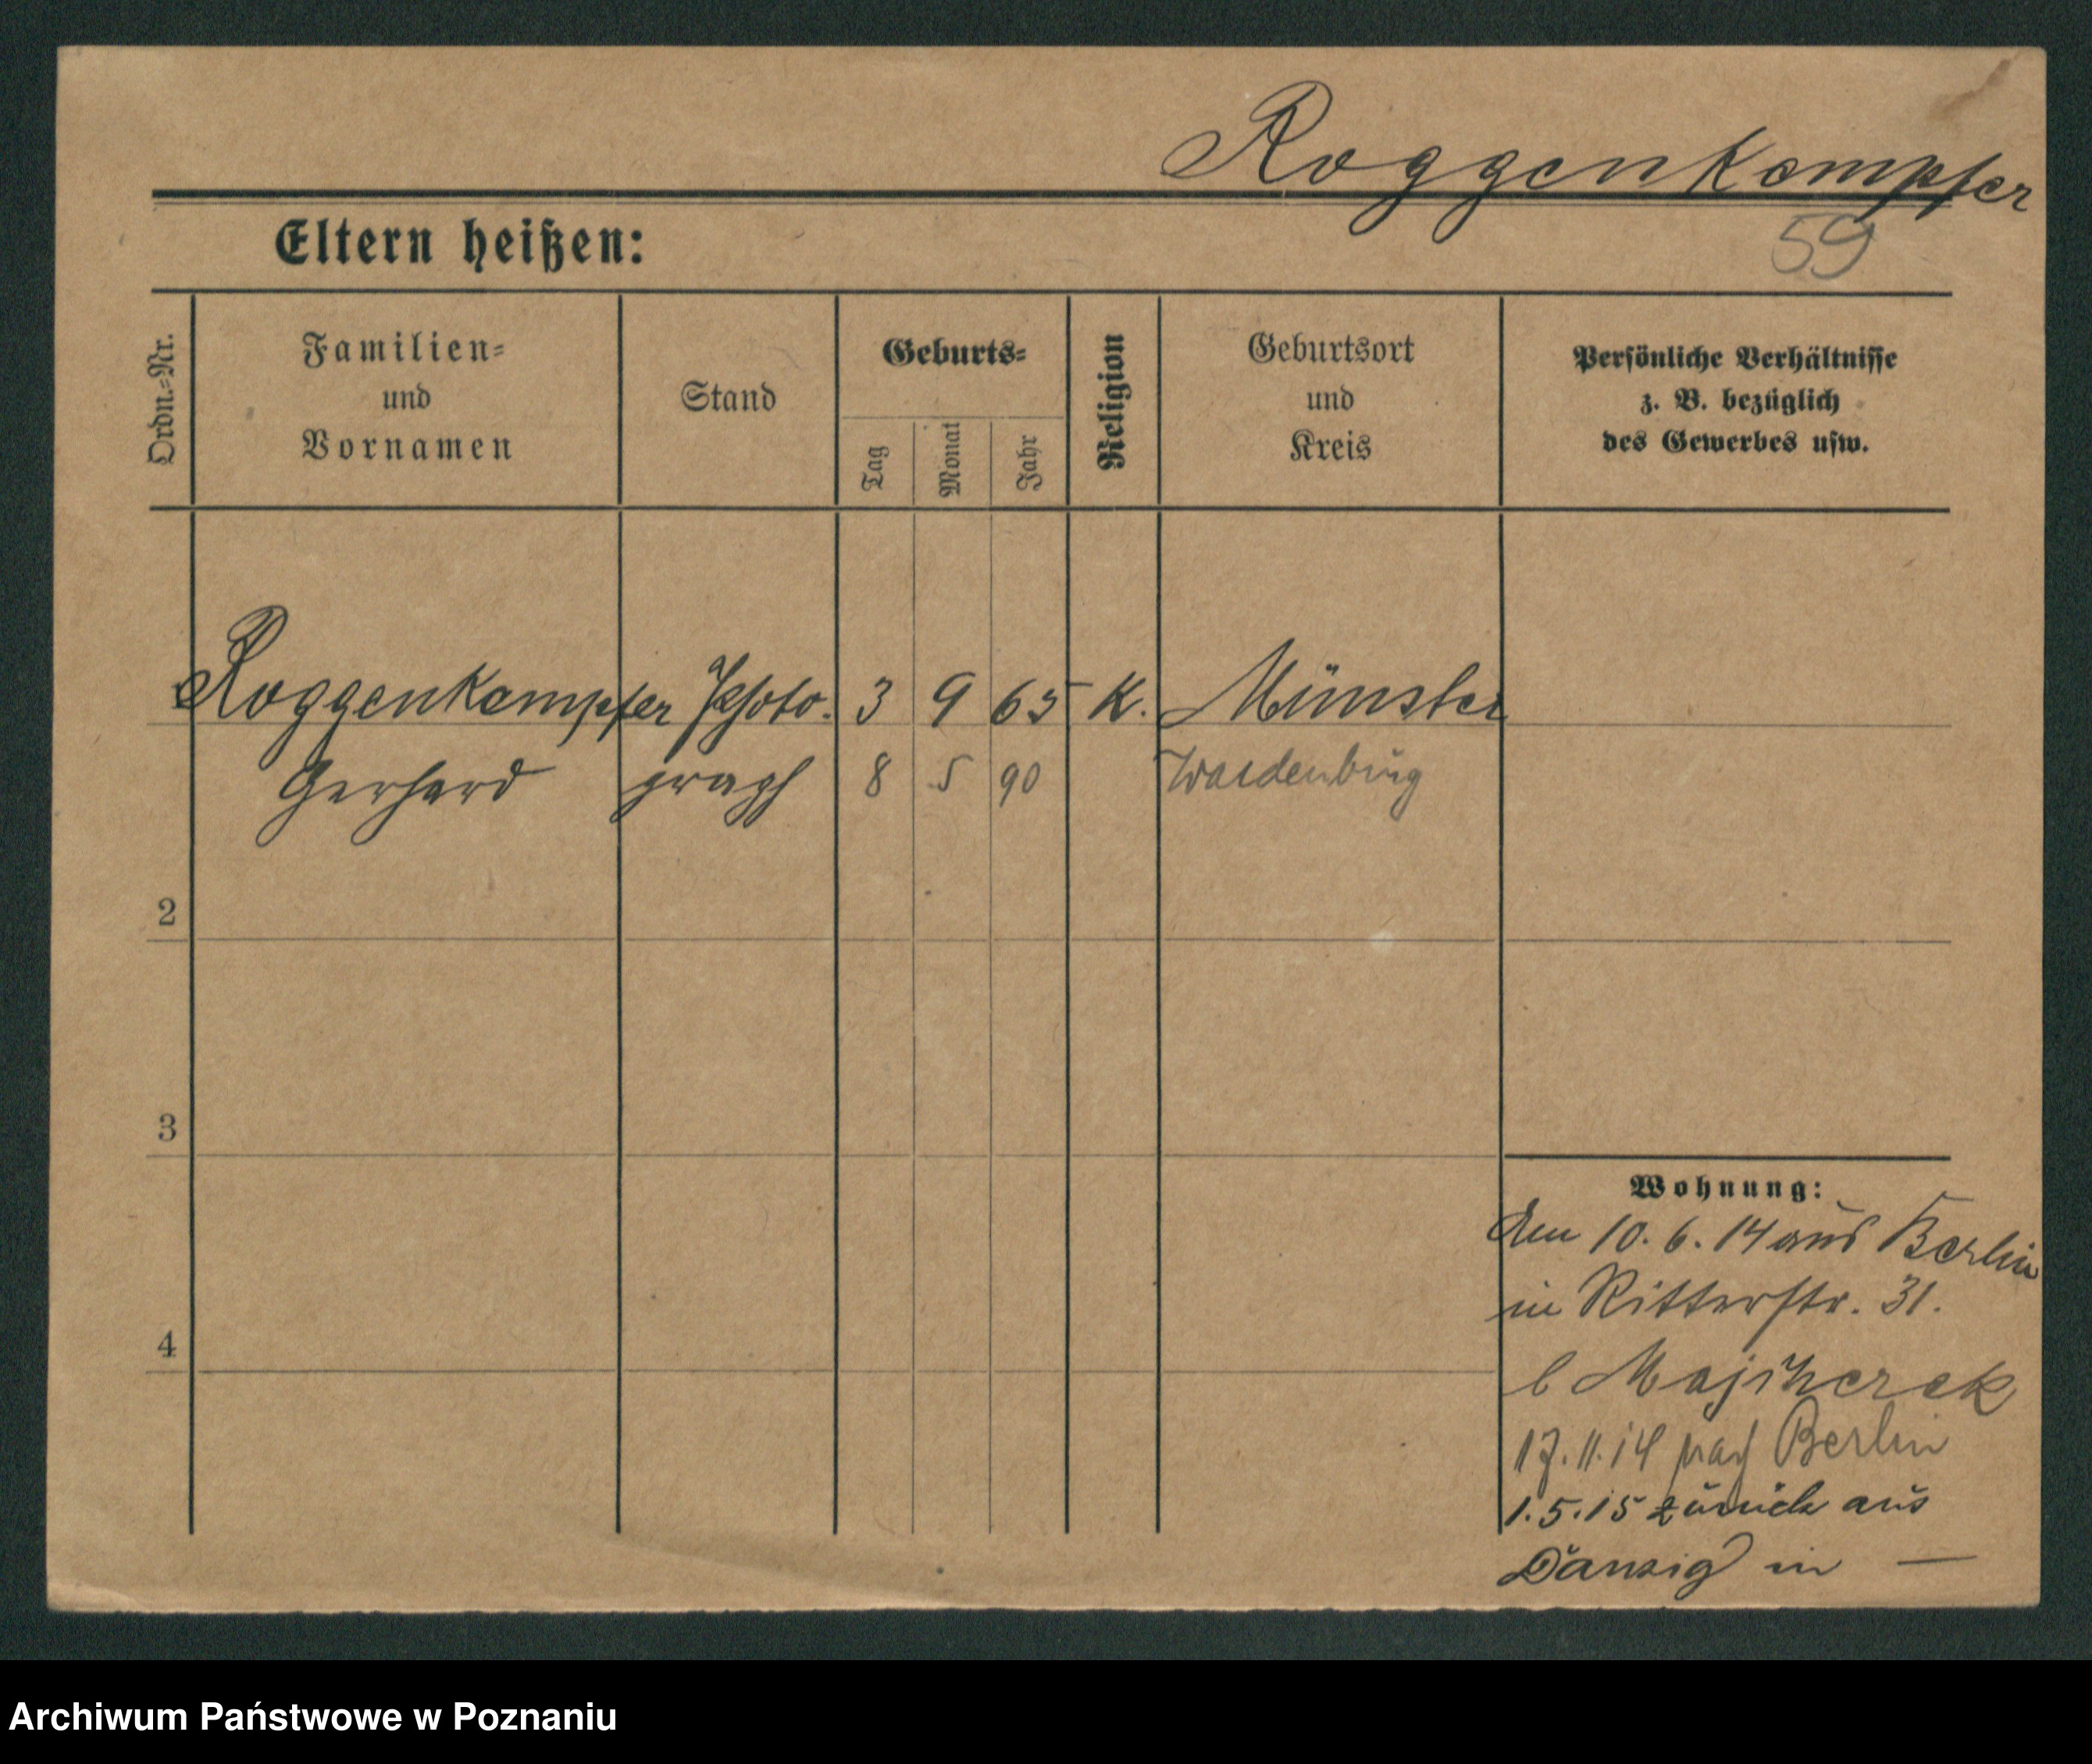 Roggenkämpfer
59
Eltern heißen:
Ordn.-Nr.
Familien-
und
Vornamen
Stand
Geburts-
Tag
Monat
Jahr
Religion
Geburtsort
und
Kreis
Persönliche Verhältnisse
z. B. bezüglich
des Gewerbes usw.
Roggenkämpfer Photo. 3 9 65 K. Münster
Gerhard graph 8 5 90 Wardenburg
2
3
4
Wohnung:
Am 10.6.14 aus Berlin
in Ritterstr. 31.
b
17.11.14 nach Berlin
1.5.15 zurück aus
Danzig in —
Archiwum Państwowe w Poznaniu